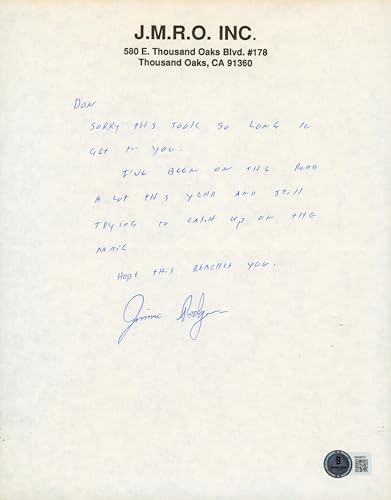 J.M.R.O. INC.
580 E. Thousand Oaks Blvd. #178
Thousand Oaks, CA 91360
DON
SORRY THIS TOOK SO LONG TO
GET TO YOU.
I'VE BEEN ON THE ROAD
A LOT THIS YEAR AND STILL
TRYING TO CATCH UP ON THE
HOPE THIS REACHES YOU.
Jimmie Rodgers